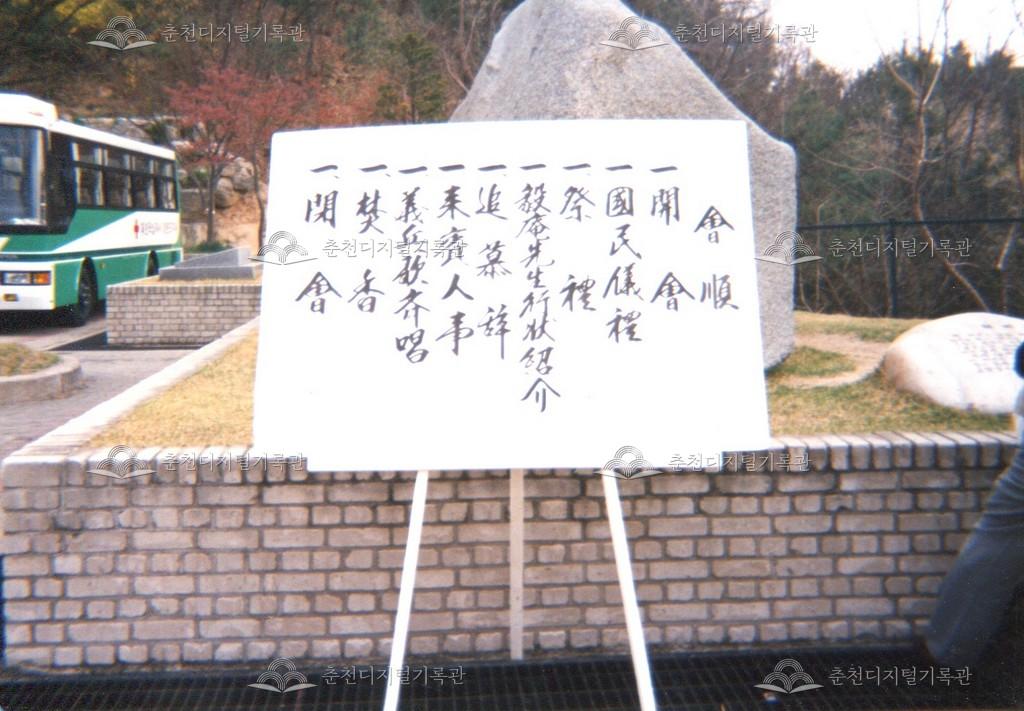 會順
一. 開會
一. 國民儀禮
一. 祭禮
一. 毅庵先生行狀紹介
一. 追慕辞
一. 来賓人事
一. 義兵歌齐唱
一. 焚香
一. 閉會
春천디지털기록관
春천디지털기록관
春천디지털기록관
春천디지털기록관
春천디지털기록관
春천디지털기록관
春천디지털기록관
春천디지털기록관